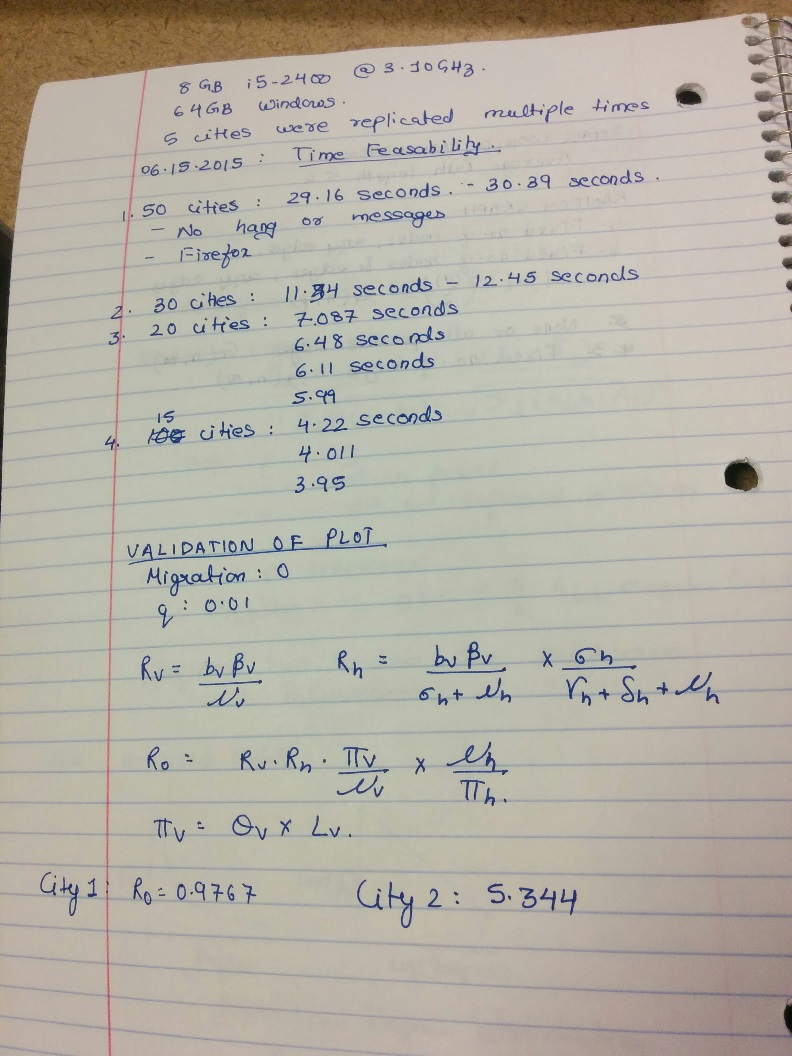 8 GB i5-2400 @ 3.10GHz.
64GB Windows.
5 cities were replicated multiple times
06.15.2015 : Time Feasability.
1. 50 cities : 29.16 seconds. - 30.39 seconds.
- No hang or messages
- Firefox
2. 30 cities : 11.34 seconds - 12.45 seconds
3. 20 cities : 7.087 seconds
6.48 seconds
6.11 seconds
5.99
4. 15 cities : 4.22 seconds
4.011
3.95
VALIDATION OF PLOT
Migration : 0
q : 0.01
Rv = bv βv / μv    Rh = bv βv / σh + μh × σh / γh + δh + μh
R0 = Rv · Rh · πv / μv × μh / πh.
πv = θv × Lv.
City 1 : R0 = 0.9767    City 2 : 5.344